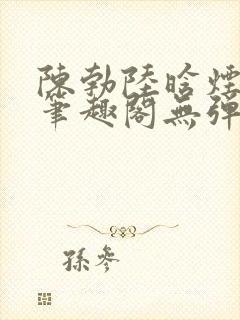 陳勃陸晗煙
筆趣閣無彈
孫參